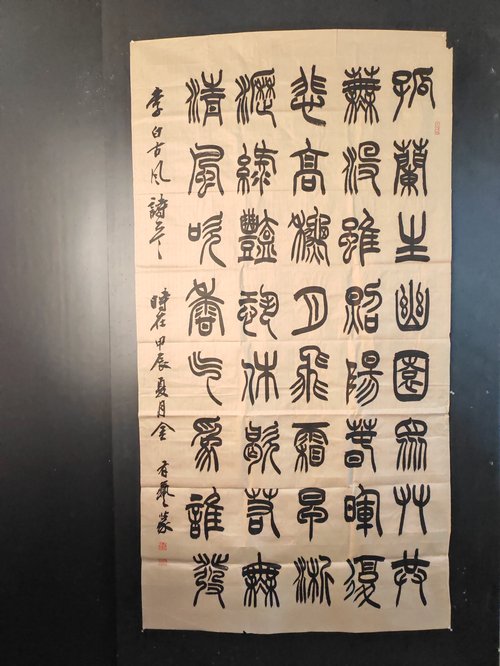 孤蘭生幽園眾艸共
蕪沒雖照陽春暉復
悲高秋月飛霜早淅
瀝綠豔恐休歇若無
清風吹香气為誰發
李白古风詩 時在甲辰夏月金 篆